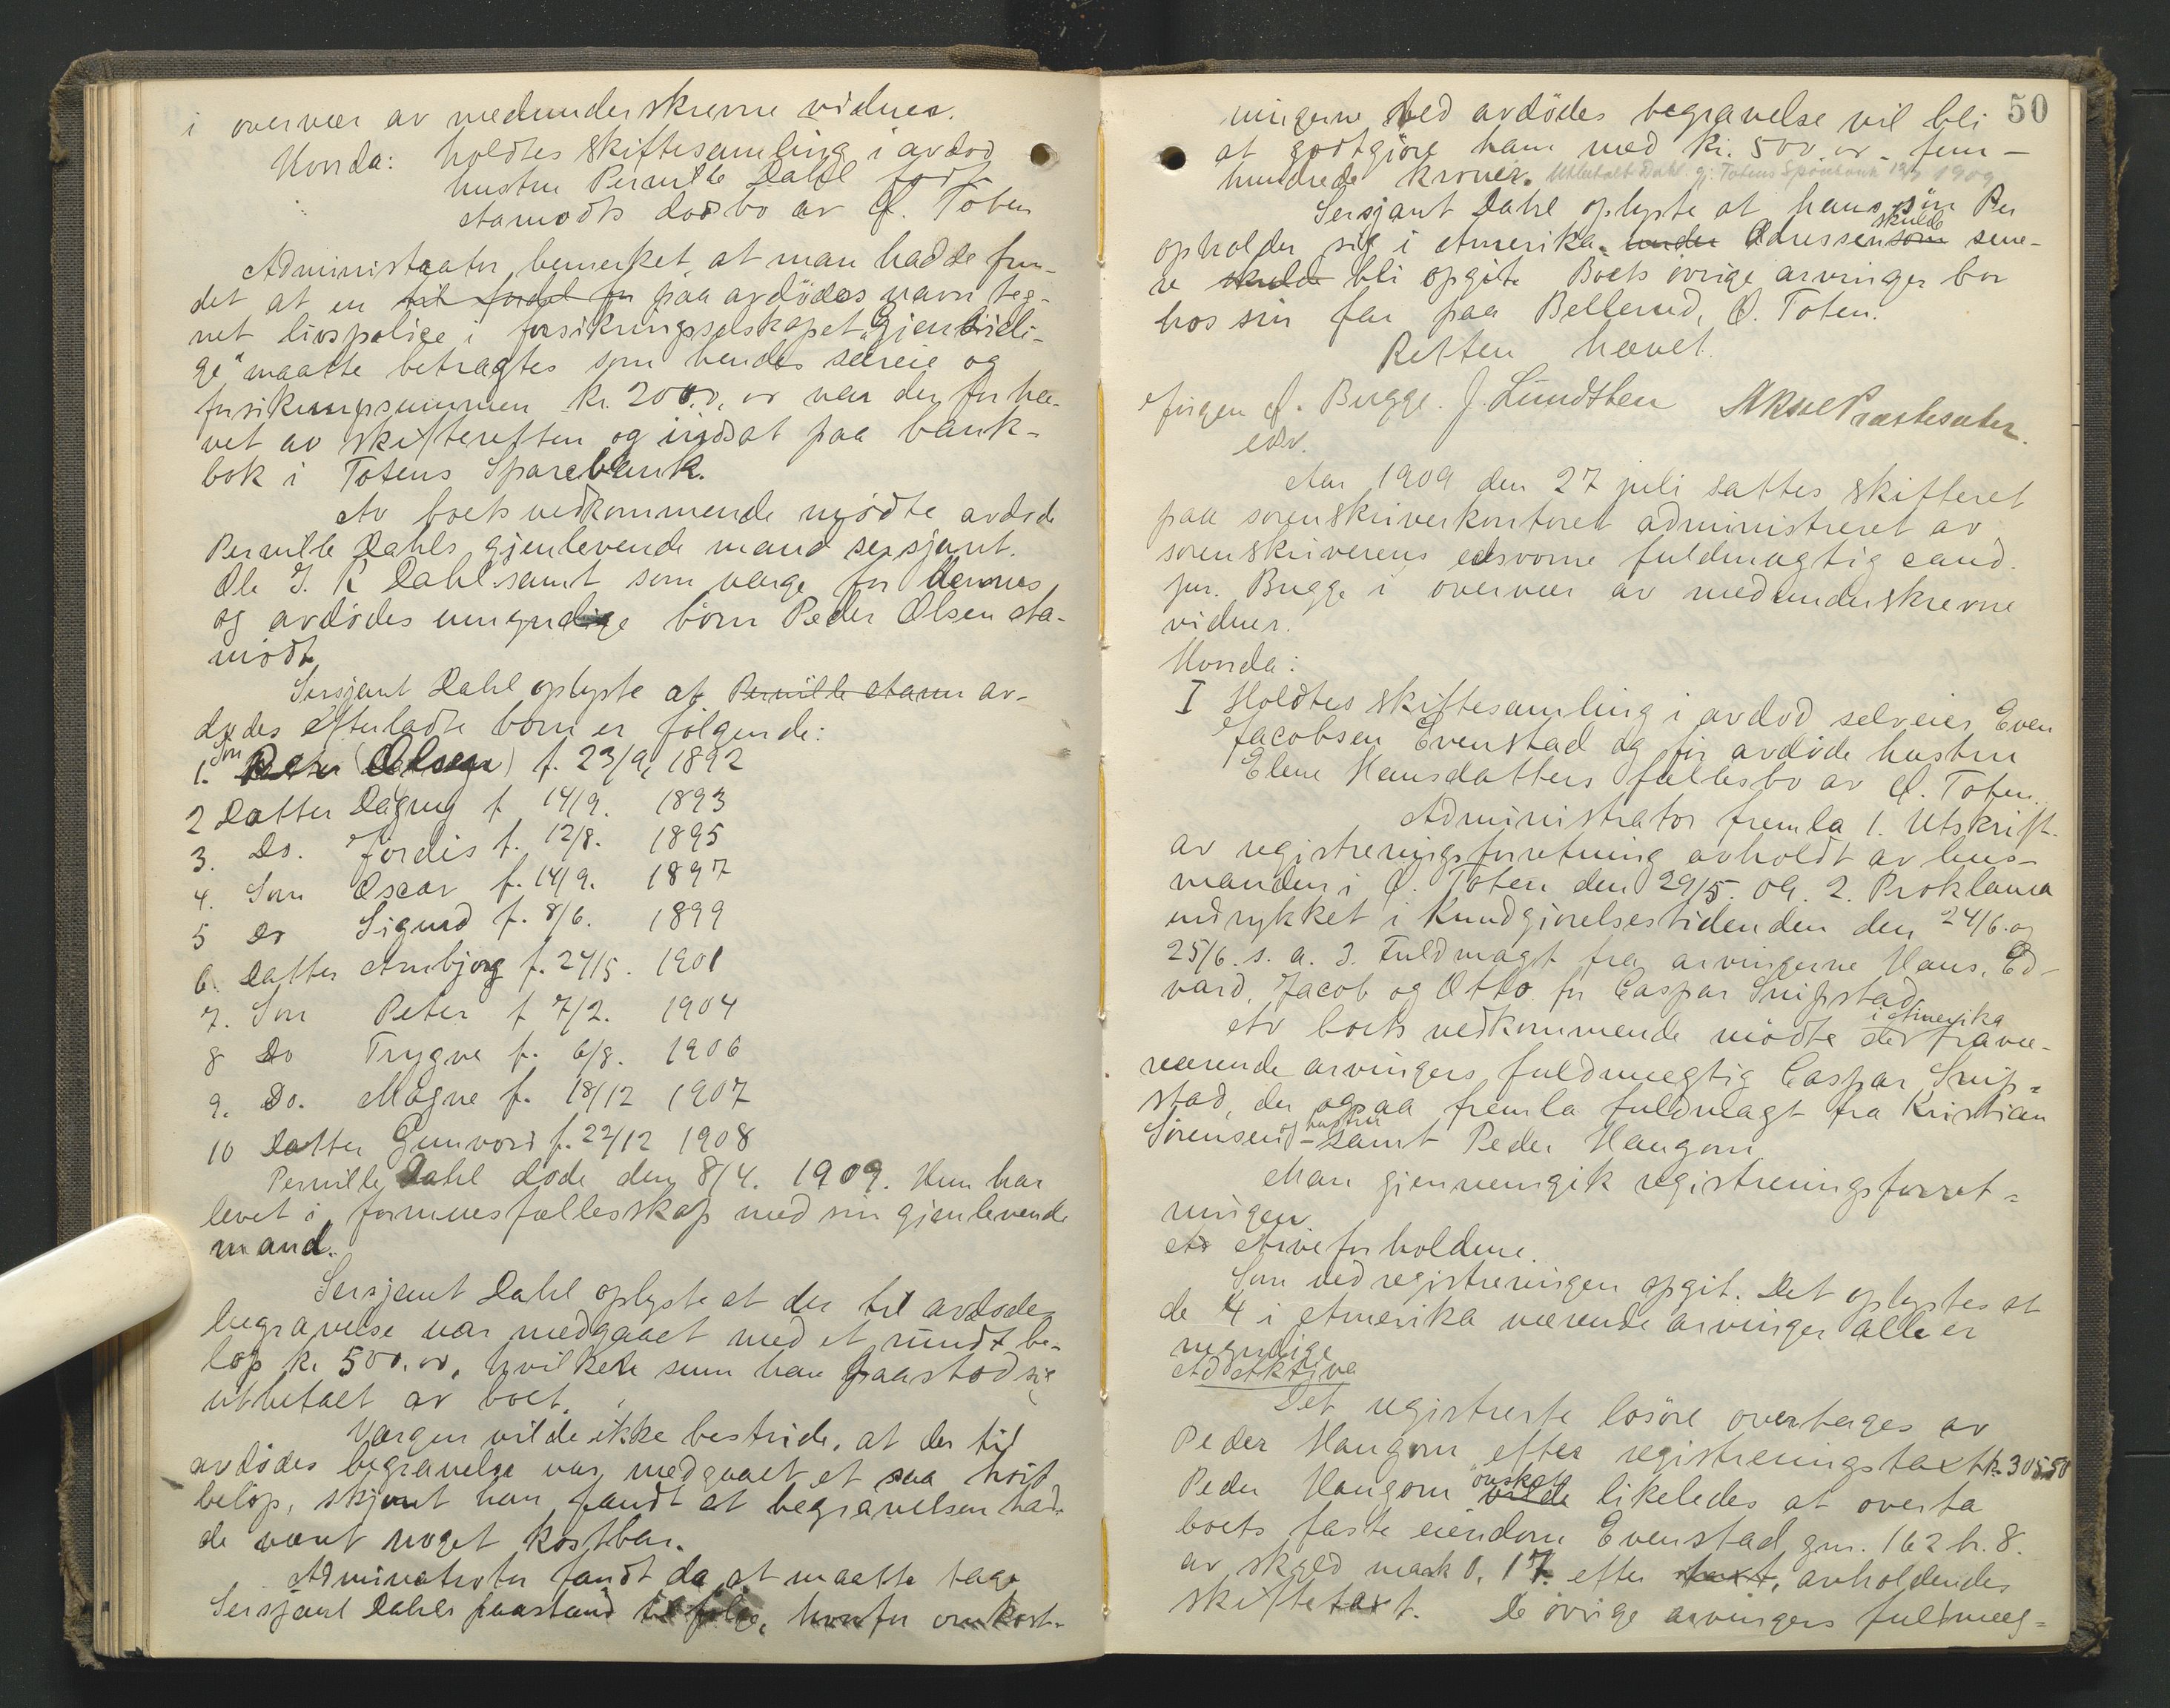 i overvær av medunderskrevne vidner.
Hvorda: holdtes skiftesamling i avdød
hustru Pernille Dahl født
Aamodts dødsbo av Ø. Toten
Administrator bemerket, at man hadde fun-
det at en til fordel for paa avdødes navn teg-
net livspolice i forsikringsselskapet "Gjensidi-
ge" maatte betragtes som hendes særeie og
forsikringssummen kr. 2000,00 var der for hæ-
vet av skifteretten og indsat paa bank-
bok i Totens Sparebank.
Av boets vedkommende mødte avdøde
Pernille Dahls gjenlevende mand sersjant
Ole J. K Dahl samt som værge for dennes
og avdødes umyndige børn Peder Olsen Aa-
modt
Sersjant Dahl oplyste at Pernille Aam av-
dødes efterladte børn er følgende:
1. Søn Per (Olsen) f. 23/9, 1892
2 Datter Dagny f 14/9. 1893
3. Do. Jordis f. 12/8. 1895
4. Søn Oscar f. 14/9. 1897
5 Do Sigurd f. 8/6. 1899
6. Datter Ambjørg f. 24/5. 1901
7. Søn Peter f 7/2. 1904
8 Do Trygve f. 6/8. 1906
9. Do. Magne f. 18/12 1907
10 Datter Gunvor f. 22/12 1908
Pernille Dahl døde den 8/4. 1909. Hun har
levet i formuesfællesskap med sin gjenlevende
mand.
Sersjant Dahl oplyste at der til avdødes
begravelse var medgaaet med et rundt be-
løp kr. 500.00, hvilken sum han paastod sig
utbetalt av boet.
Værgen vilde ikke bestride, at der til
avdødes begravelse var medgaaet et saa høit
beløp, skjønt han fandt at begravelsen had-
de været noget kostbar.
Administrator fandt da at maatte tage
Sersjant Dahls paastand til følge, hvorfor omkost-
50
ningerne ved avdødes begravelse vil bli
at godtgjøre ham med kr. 500.00 - fem -
hundrede kroner. Utbetalt Dahl gj. Totens Sparebank 1909
Sersjant Dahl oplyste at hans søn Per
opholder sig i Amerika. under Adressen som skulde sene-
re skulde bli opgit. Boets øvrige arvinger bor
hos sin far paa Bellerud, Ø. Toten.
Retten hævet.
Jørgen A. Bugge. J. Lundsten Aksel Præstesæter.
edsv.
Aar 1909 den 27 juli sattes skifteret
paa sorenskriverkontoret administreret av
sorenskriverens edsvorne fuldmægtig cand.
jur. Bugge i overvær av medunderskrevne
vidner.
Hvorda:
I Holdtes skiftesamling i avdød selveier Even
Jacobsen Evenstad og før avdøde hustru
Elene Hansdatters fællesbo av Ø. Toten.
Administrator fremla 1. Utskrift
av registreringsforretning avholdt av lens-
manden i Ø. Toten den 29/5. 09. 2. Proklama
indrykket i Kundgjørelsestidenden den 24/6. og
25/6. s. a. 3. Fuldmagt fra arvingerne Hans, Ed-
vard, Jacob og Otto for Caspar Snipstad.
Av boets vedkommende mødte de i Amerika fravæ-
rerende arvingers fuldmægtig Caspar Snip-
stad, der ogsaa fremla fuldmagt fra Kristian
Sørensen og hustru - samt Peder Haugom
Man gjennemgik registreringsforret-
ningen
Ad Arveforholdene.
Som ved registreringen opgit. Det oplystes at
de 4 i Amerika værende arvinger alle er
myndige
Ad Aktiva
Det registrerte løsøre overtages av
Peder Haugom efter registreringstaxt kr. 305.50
Peder Haugom vilde ønskete likeledes at overta
boets faste eiendom Evenstad gnr. 162 br. 8.
av skyld mark 0,17. efter taxt, avholdendes
skiftetaxt. De øvrige arvingers fuldmæg-